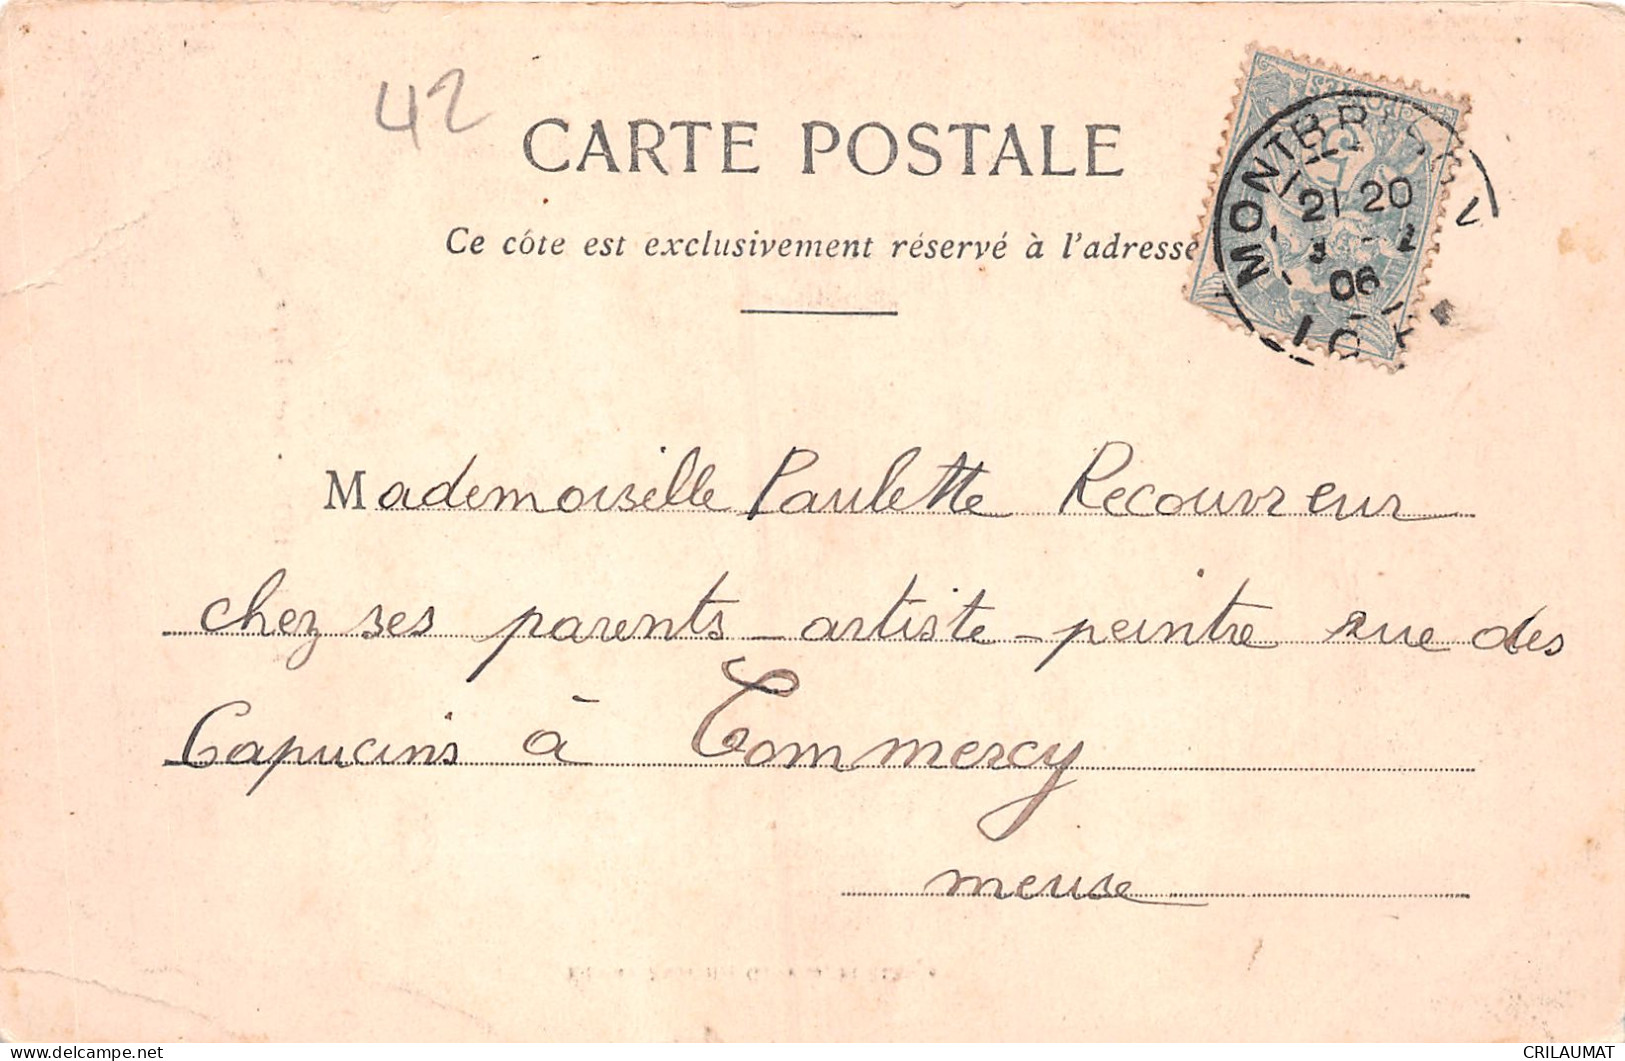 42
CARTE POSTALE
Ce côte est exclusivement réservé à l'adresse
21 20
3 - 2
06
Mademoiselle Paulette Recouvreur
chez ses parents - artiste - peintre rue des
Capucins à Commercy
meuse
https://www.delcampe.net
CRILAUMAT